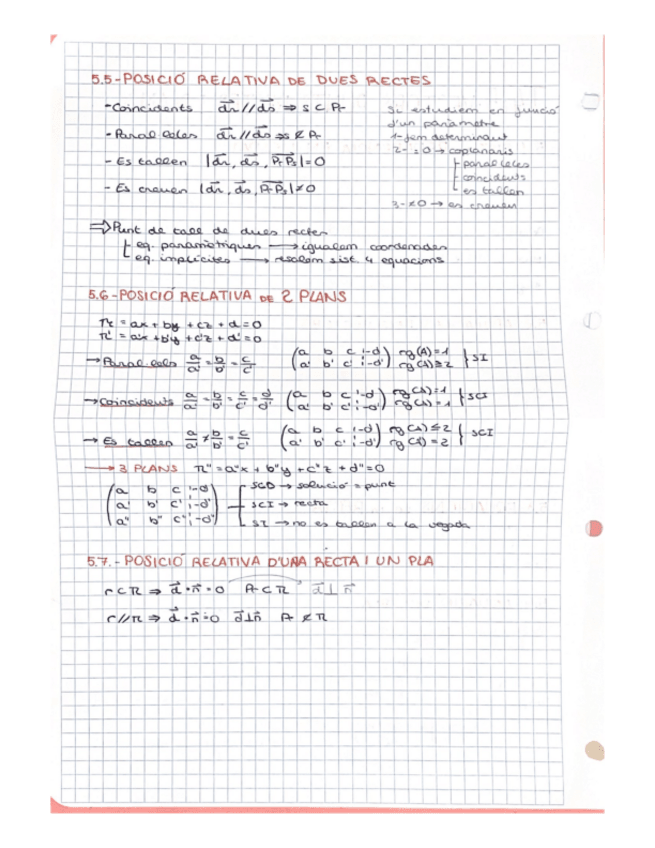 5.5-POSICIÓ RELATIVA DE DUES RECTES
-Coincidents d⃗r // d⃗s ⇒ s ⊂ Pr
-Paral·leles d⃗r // d⃗s ⇒ s ⊄ Pr
-Es tallen |d⃗r, d⃗s, PrPs| = 0
-Es creuen |d⃗r, d⃗s, PrPs| ≠ 0
Si estudiem en funció
d'un paràmetre
1-fem determinant
2- =0 → coplanaris
paral·leles
coincidents
es tallen
3- ≠0 → es creuen
⇒ Punt de tall de dues rectes
eq. paramètriques → igualem coordenades
eq. implícites → resolem sist. 4 equacions
5.6-POSICIÓ RELATIVA DE 2 PLANS
π = ax + by + cz + d = 0
π' = a'x + b'y + c'z + d' = 0
→ Paral·lels a/a' = b/b' = c/c' (a b c ¦ -d) rg(A)=1 } SI
(a' b' c' ¦ -d') rg(A)=2
→ Coincidents a/a' = b/b' = c/c' = d/d' (a b c ¦ -d) rg(A)=1 } SCI
(a' b' c' ¦ -d') rg(A)=1
→ Es tallen a/a' ≠ b/b' = c/c' (a b c ¦ -d) rg(A)≤2 } SCI
(a' b' c' ¦ -d') rg(A)=2
→ 3 PLANS π'' = a''x + b''y + c''z + d'' = 0
(a b c ¦ -d) SCD → solució = punt
(a' b' c' ¦ -d') SCI → recta
(a'' b'' c'' ¦ -d'') SI → no es tallen a la vegada
5.7.-POSICIÓ RELATIVA D'UNA RECTA I UN PLA
r ⊂ π ⇒ d⃗ · n⃗ = 0 A ⊂ π d⃗ ⊥ n⃗
r // π ⇒ d⃗ · n⃗ = 0 d⃗ ⊥ n⃗ A ⊄ π